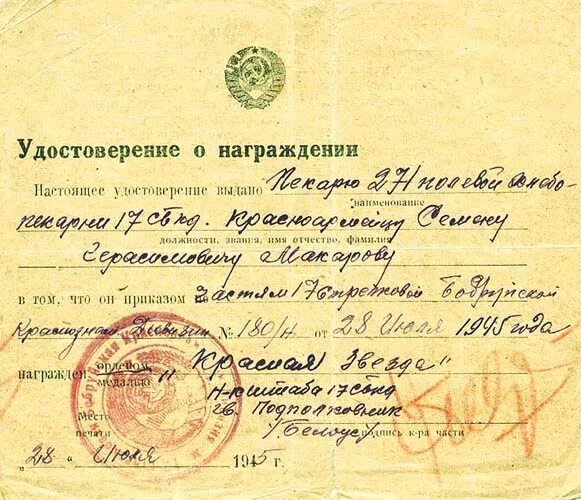 Удостоверение о награждении
Настоящее удостоверение выдано Пекарю 271 полевой хлебо-
наименование
пекарни 17 сбкд. Красноармейцу Семену
должности, звания, имя отчество, фамилия
Герасимовичу Макарову
в том, что он приказом по Частям 17 Стрелковой Бобруйской
Краснознам Дивизии № 180/н от 28 Июля 1945 года
награжден орденом, "Красная Звезда"
медалью
Н-к штаба 17 сбкд
Место гв. Подполковник
печати /Белоус/ подпись к-ра части
"28" Июля 1945 г.